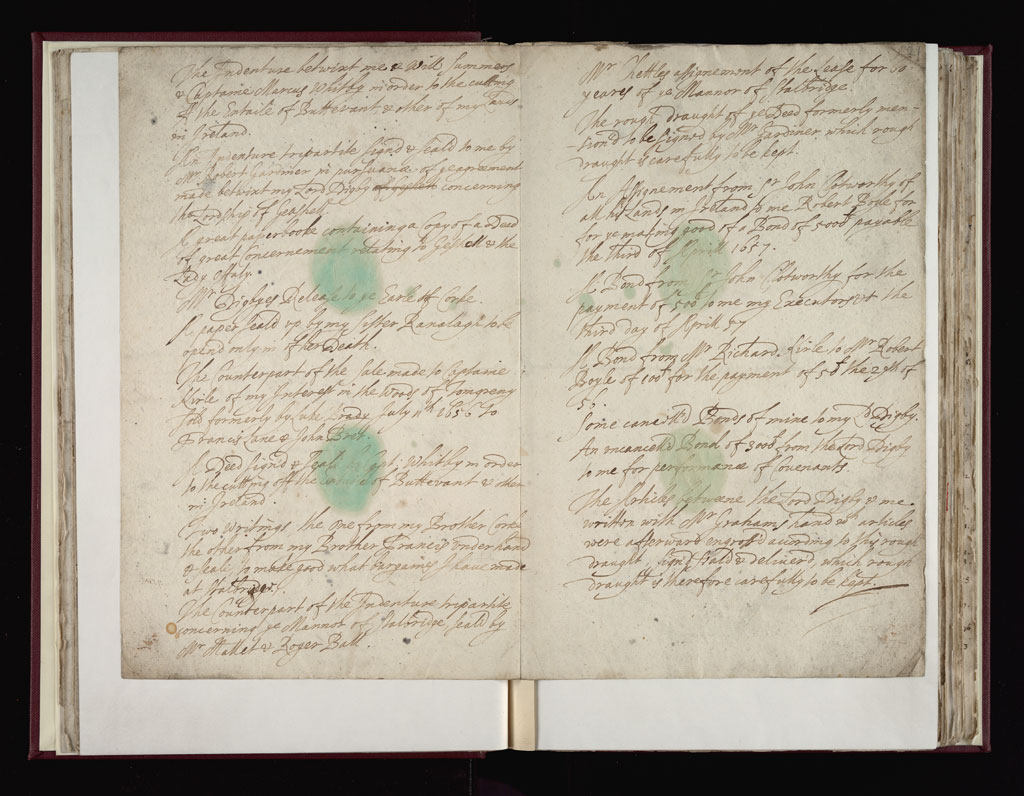 The Indenture betwixt me & Will Summers
& Captaine Marcus Whitby in order to the cutting
of the Entaile of Buttevant & other of my
in Ireland.
An Indenture tripartite signd & seald to me by
Mr Robert Gardiner in pursuance of ye agreement
made betwixt my Lord Digby concerning
the Lordship of Geashel.
A great paper booke containing a Copy of a Deed
of great Concernement relating to Geshell & the
Lady Offaly.
Mr Digbyes Release to ye Earle of Corke.
A paper seald up by my Sister Ranalagh to be
opend only in of her Death.
The Counterpart of the Sale made to Captaine
Kirle of my Interest in the Woods of
sold formerly by Luke Brady July 11th 1656 to
Francis Cane & John
A Deed signd & Seald by Capt: Whitby in order
to the cutting off the Entaile of Buttevant & other
in Ireland.
Two Writings the one from my Brother Corke
the other from my Brother Francis under hand
& seale to make good what bargains I have made
at Stalbridge.
The Counterpart of the Indenture tripartite
concerning ye Mannor of Stalbridge seald by
Mr Mallet & Roger Ball.
Mr Kettles assignement of the Lease for 60
yeares of ye Mannor of Stalbridge.
The rough draught of ye Deed formerly men-
-tion'd to be signed by Mr Gardiner, which rough
draught is carefully to be kept.
An Assignement from Sr John Clotworthy of
all his Lands in Ireland to me Robert Boyle for
for ye making good of a Bond of 5000lb payable
the third of Aprill 1657.
A Bond from Sr John Clotworthy for the
payment of 500lb to me my Executors &c the
third day of Aprill 57
A Bond from Mr Richard Kirle to Mr Robert
Boyle of 100lb for the payment of 50lb the 29th of
Some cancell'd Bonds of mine to my Ld Digby.
An uncancelld Bond of 3000lb from the Lord Digby
to me for performance of Covenants.
The Articles betweene the Lord Digby & me
written with Mr Grahams hand wch articles
were afterward engross'd according to this rough
draught, signd, Seald & deliverd, which rough
draught is therefore carefully to be kept.